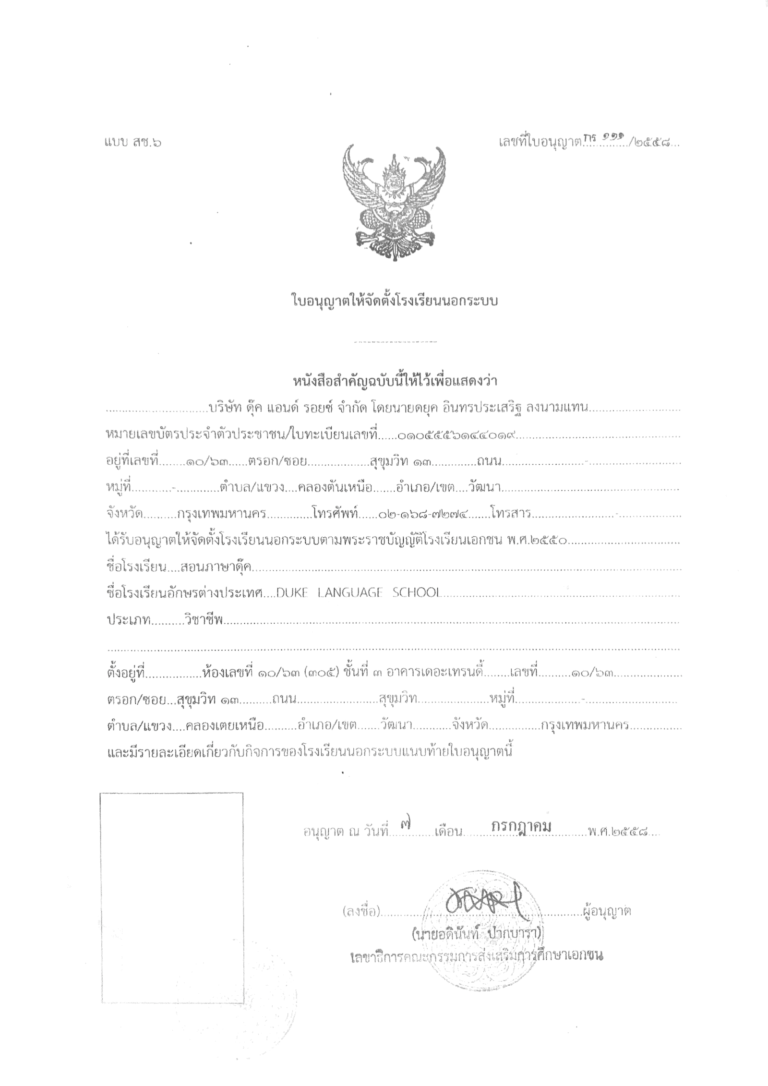 แบบ สช.๖
เลขที่ใบอนุญาต...กร ๑๑๑/๒๕๕๘...
ใบอนุญาตให้จัดตั้งโรงเรียนนอกระบบ
หนังสือสำคัญฉบับนี้ให้ไว้เพื่อแสดงว่า
บริษัท ดุ๊ค แอนด์ รอยซ์ จำกัด โดยนายดยุค อินทรประเสริฐ ลงนามแทน
หมายเลขบัตรประจำตัวประชาชน/ใบทะเบียนเลขที่......๐๑๐๕๕๕๖๑๔๔๐๑๙
อยู่ที่เลขที่........๑๐/๖๓......ตรอก/ซอย...................สุขุมวิท ๑๓..............ถนน.........................-
หมู่ที่............-..............ตำบล/แขวง....คลองตันเหนือ.......อำเภอ/เขต....วัฒนา
จังหวัด..........กรุงเทพมหานคร..............โทรศัพท์......๐๒-๑๖๘-๗๒๗๔.......โทรสาร.........................-
ได้รับอนุญาตให้จัดตั้งโรงเรียนนอกระบบตามพระราชบัญญัติโรงเรียนเอกชน พ.ศ.๒๕๕๐
ชื่อโรงเรียน....สอนภาษาดุ๊ค
ชื่อโรงเรียนอักษรต่างประเทศ....DUKE LANGUAGE SCHOOL
ประเภท..........วิชาชีพ
ตั้งอยู่ที่.................ห้องเลขที่ ๑๐/๖๓ (๓๐๕) ชั้นที่ ๓ อาคารเดอะเทรนดี้........เลขที่..........๑๐/๖๓
ตรอก/ซอย...สุขุมวิท ๑๓..........ถนน.........................สุขุมวิท......................หมู่ที่....................-
ตำบล/แขวง....คลองเตยเหนือ..........อำเภอ/เขต.......วัฒนา............จังหวัด................กรุงเทพมหานคร
และมีรายละเอียดเกี่ยวกับกิจการของโรงเรียนนอกระบบแนบท้ายใบอนุญาตนี้
อนุญาต ณ วันที่...๗.......เดือน.........กรกฎาคม...........พ.ศ.๒๕๕๘....
(ลงชื่อ)............................................................ผู้อนุญาต
(นายอดินันท์ ปากบารา)
เลขาธิการคณะกรรมการส่งเสริมการศึกษาเอกชน